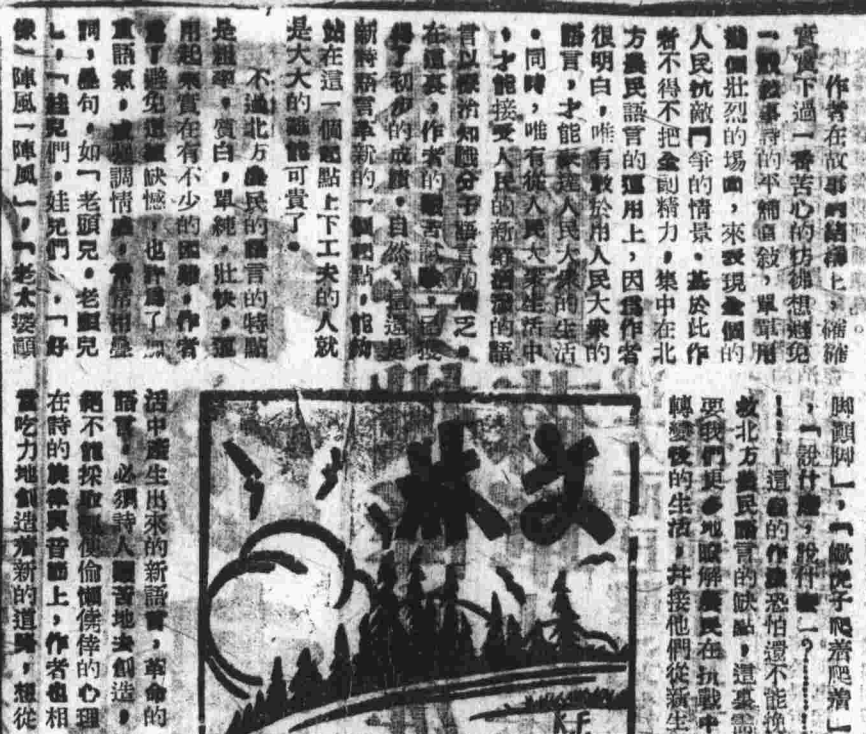 作者在故事的結構上，確確
實實下過一番苦心的彷彿想避免
一般敍事詩的平鋪直敍，單單用
幾個壯烈的場面，來表現全個的
人民抗敵鬥爭的情景。基於此作
者不得不把全副精力，集中在北
方農民語言的運用上，因爲作者
很明白，唯有敢於用人民大衆的
語言，才能表達人民大衆的生活
。同時，唯有從人民大衆生活中
，才能接受人民的新的語
言以醫治知識分子語言的貧乏。
在這裏，作者的艱苦試驗，已獲
得了初步的成績。自然，這還是
新詩語言革新的一個起點，能夠
站在這一個起點上下工夫的人就
是大大的難能可貴了。
不過北方農民的語言的特點
是粗率，質白，單純，壯快，運
用起來實在有不少的困難，作者
爲了避免這種缺憾，也許爲了加
重語氣，或強調情感，常常用疊
詞，疊句，如「老頭兒，老頭兒
」，「娃兒們，娃兒們」，「好
像一陣風一陣風」，「老太婆顛
脚顛脚」，「蠍虎子爬着爬着」
，「說什麼，說什麼」？………
………這樣的作法恐怕還不能挽
救北方農民語言的缺點，這裏需
要我們更多地瞭解農民在抗戰中
轉變後的生活，幷接他們從新生
活中產生出來的新語言，革命的
語言，必須詩人艱苦地去創造，
絕不能採取便偷懶僥倖的心理
在詩的旋律與音節上，作者也相
當吃力地創造着新的道路，想從
文林